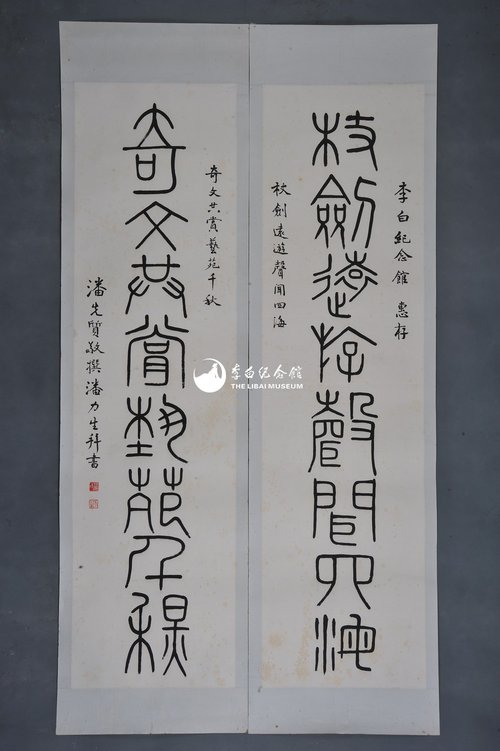 李白紀念館 惠存
杖劍遠游聲聞四海
杖劍遠遊聲聞四海
奇文共賞藝苑千秋
奇文共賞藝苑千秋
潘先質敬撰潘力生拜書
李白纪念馆
THE LIBAI MUSEUM